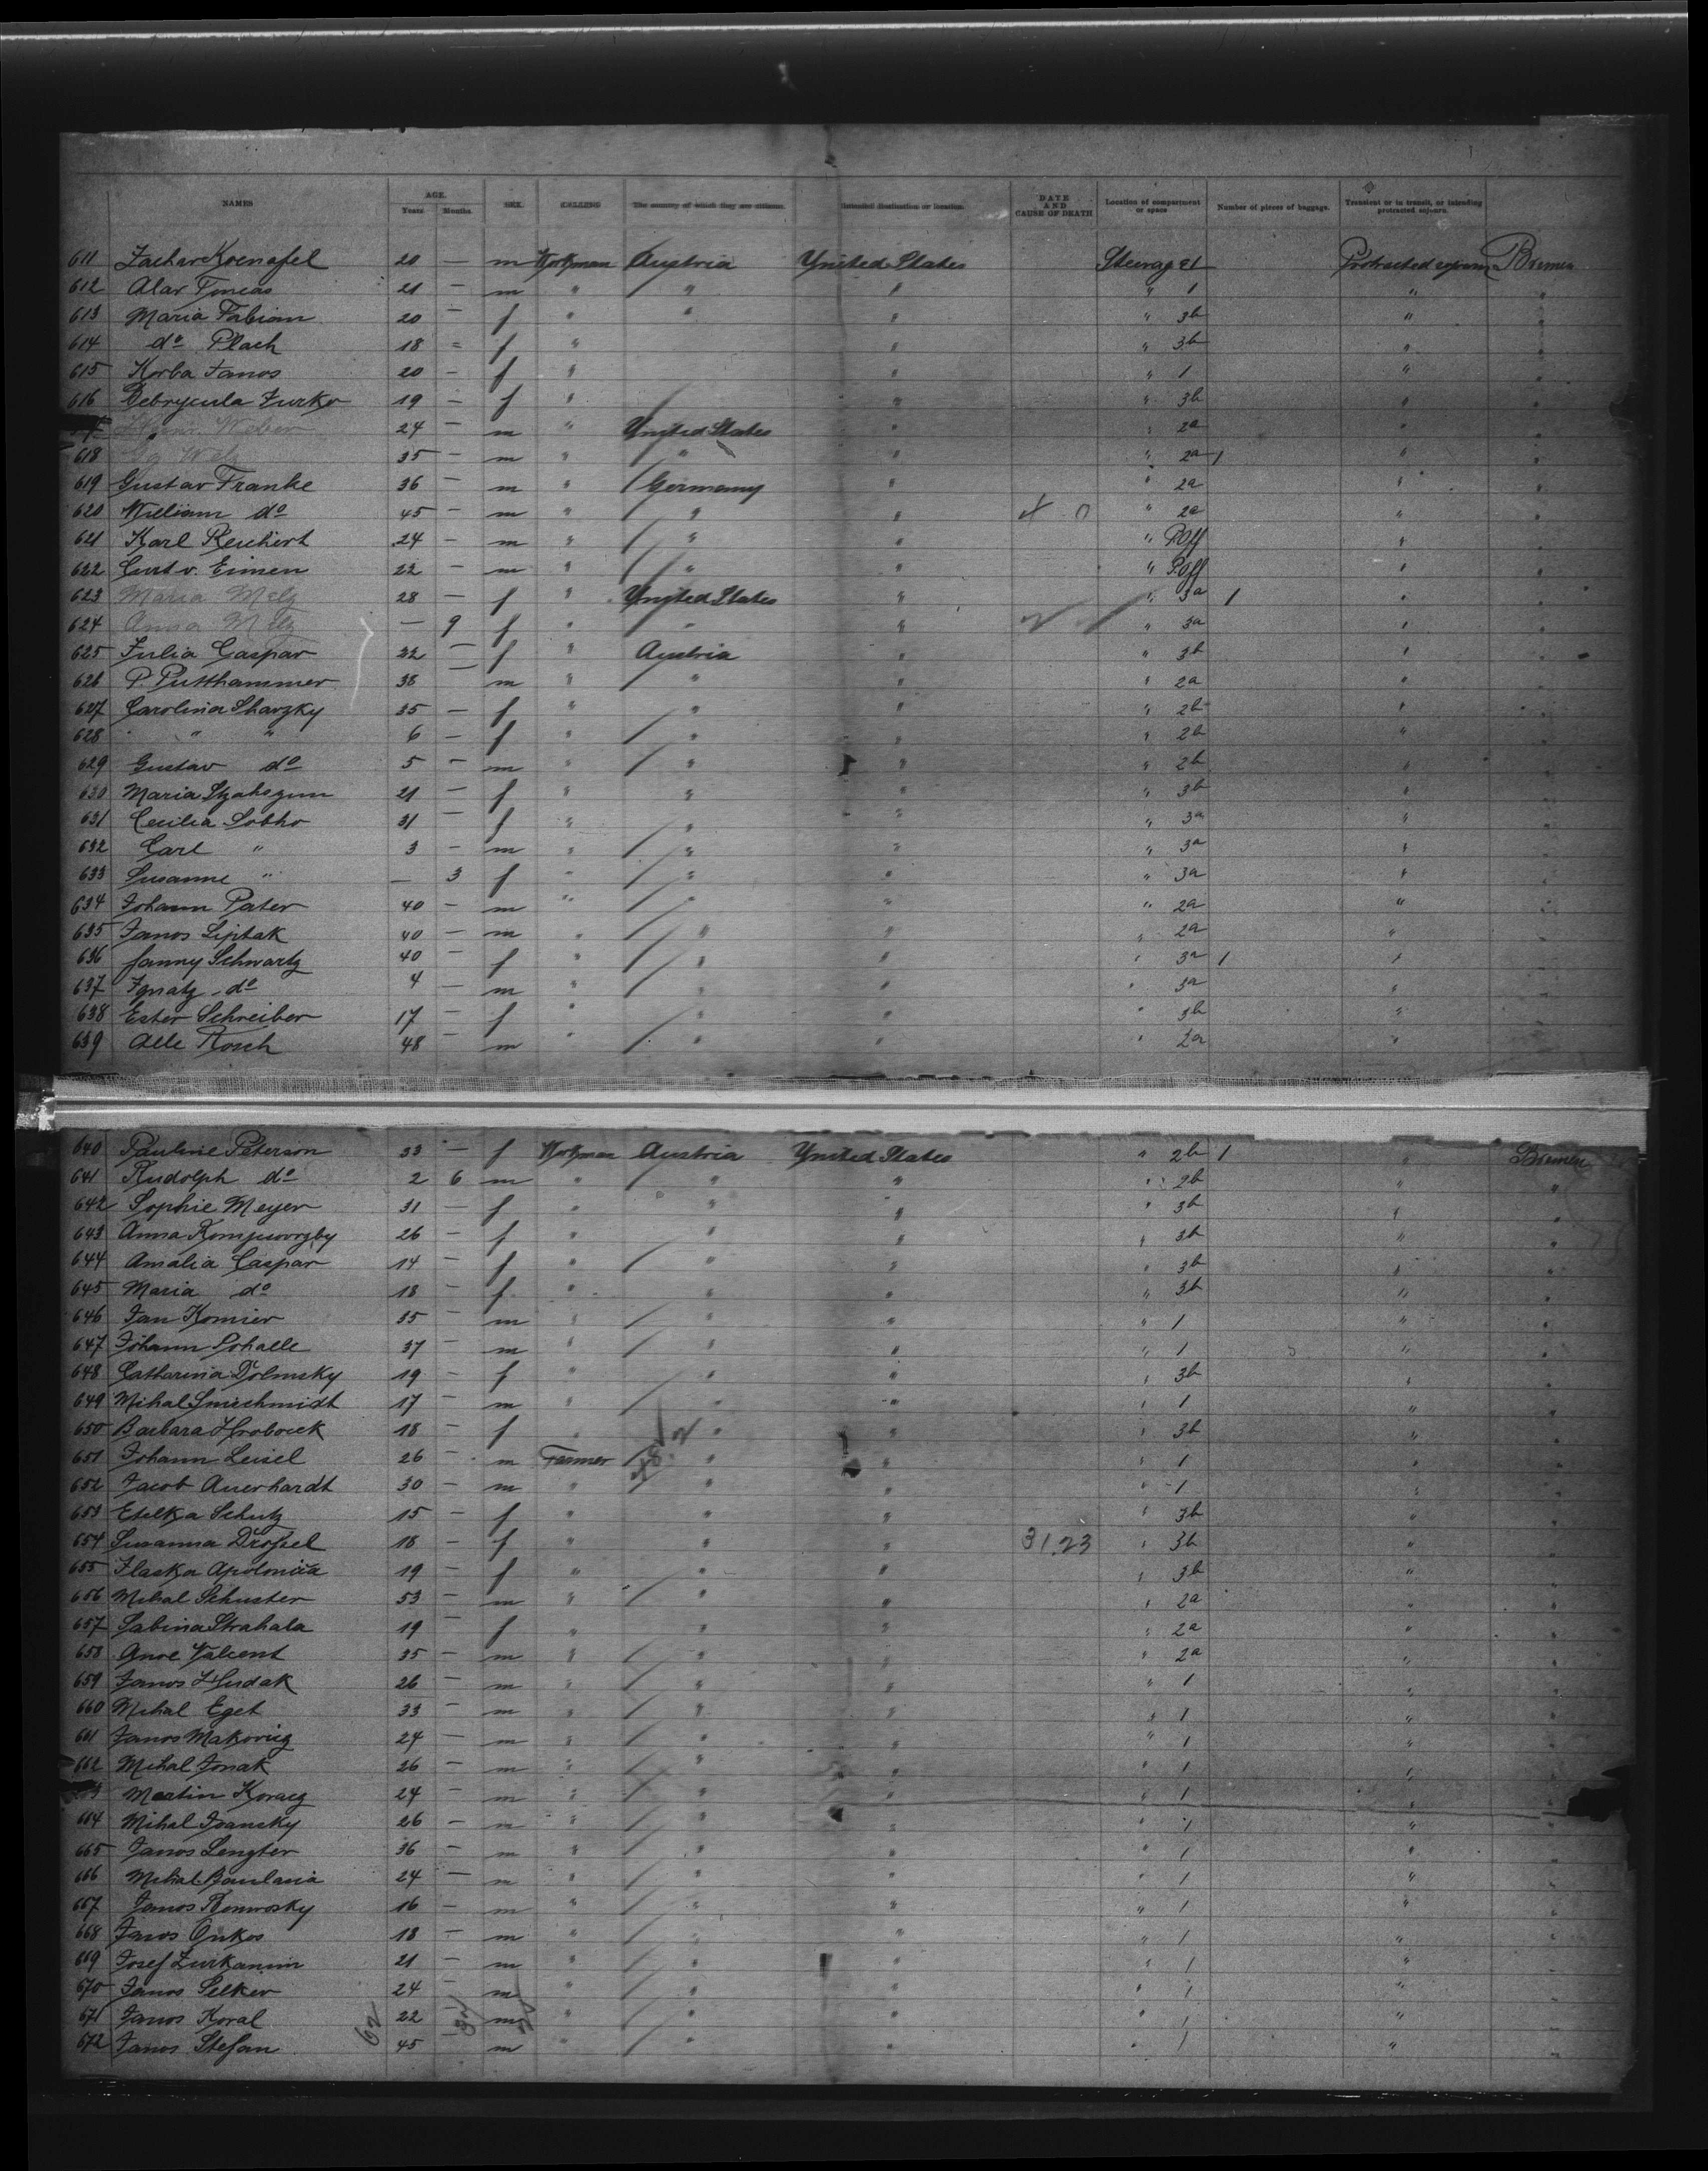 NAMES AGE. Years Months. SEX. CALLING The country of which they are citizens. Intended destination or location. DATE AND CAUSE OF DEATH Location of compartment or space Number of pieces of baggage. Transient or in transit, or intending protracted sojourn.
611 20 — m Workman Austria United States Steerage 1 Protracted sojourn Bremen
612 21 — m " " " " 1 " "
613 Maria Fabian 20 — f " " " " 3b " "
614 do Plach 18 = f " " " 3b " "
615 Korba Janos 20 — f " " " 1 " "
616 Debrycula Jurko 19 — f " " " 3b " "
Weber 24 — m " United States " " 2a " "
618 35 — m " " " " 2a 1 " "
619 Gustav Franke 36 — m " Germany " " 2a " "
620 William do 45 — m " " " " 2a " "
621 Karl Reichert 24 — m " " " " P.Off " "
622 Curt v. Eimen 22 — m " " " " P.Off " "
623 Maria Metz 28 — f " United States " " 3a 1 " "
624 Anna Metz — 9 f " " " " 3a " "
625 Julia Caspar 22 — f " Austria " " 3b " "
626 P. Putthammer 38 — m " " " " 2a " "
627 Carolina Sharzky 35 — f " " " " 2b " "
628 " " 6 — f " " " " 2b " "
629 Gustav do 5 — m " " " " 2b " "
630 Maria 21 — f " " " " 3b " "
631 Cecilia Sobko 31 — f " " " " 3a " "
632 Carl " 3 — m " " " " 3a " "
633 Susanne " — 3 f " " " " 3a " "
634 Johann Pater 40 — m " " " " 2a " "
635 Janos Liptak 40 — m " " " " 2a " "
636 Fanny Schwartz 40 — f " " " " 3a 1 " "
637 Ignatz do 4 — m " " " " 3a " "
638 Ester Schreiber 17 — f " " " " 3b " "
639 Alle Rosch 48 — m " " " " 2a " "
640 Pauline Peterson 33 — f Workman Austria United States " 2b 1 " Bremen
641 Rudolph do 2 6 m " " " " 2b " "
642 Sophie Meyer 31 — f " " " " 3b " "
643 Anna 26 — f " " " " 3b " "
644 Amalia Caspar 14 — f " " " " 3b " "
645 Maria do 18 — f " " " " 3b " "
646 Jan Komier 35 — m " " " " 1 " "
647 Johann Schalle 37 — m " " " " 1 " "
648 Catharina Dolmsky 19 — f " " " " 3b " "
649 Mihal 17 — m " " " " 1 " "
650 Barbara Hroboeck 18 — f " " " " 3b " "
651 Johann Leisel 26 — m Farmer " " " 1 " "
652 Jacob Auerhardt 30 — m " " " " 1 " "
653 Etelka Schutz 15 — f " " " " 3b " "
654 Susanna Drossel 18 — f " " " 31.23 " 3b " "
655 Ilaska Apolonia 19 — f " " " " 3b " "
656 Mihal Schuster 53 — m " " " " 2a " "
657 Sabina Strahala 19 — f " " " " 2a " "
658 35 — m " " " " 2a " "
659 Janos Hudak 26 — m " " " " 1 " "
660 Mihal Eget 33 — m " " " " 1 " "
661 Janos Makovicz 24 — m " " " " 1 " "
662 Mihal Jonak 26 — m " " " " 1 " "
Martin Koracz 24 — m " " " " 1 " "
664 Mihal Ivansky 26 — m " " " " 1 " "
665 Janos Lengter 36 — m " " " " 1 " "
666 Mihal 24 — m " " " " 1 " "
667 Janos 16 — m " " " " 1 " "
668 Janos Onkos 18 — m " " " " 1 " "
669 Josef Zurkanin 21 — m " " " " 1 " "
670 Janos Selker 24 — m " " " " 1 " "
671 Janos Koral 22 — m " " " " 1 " "
672 Janos Stefan 45 m " " " " 1 " "